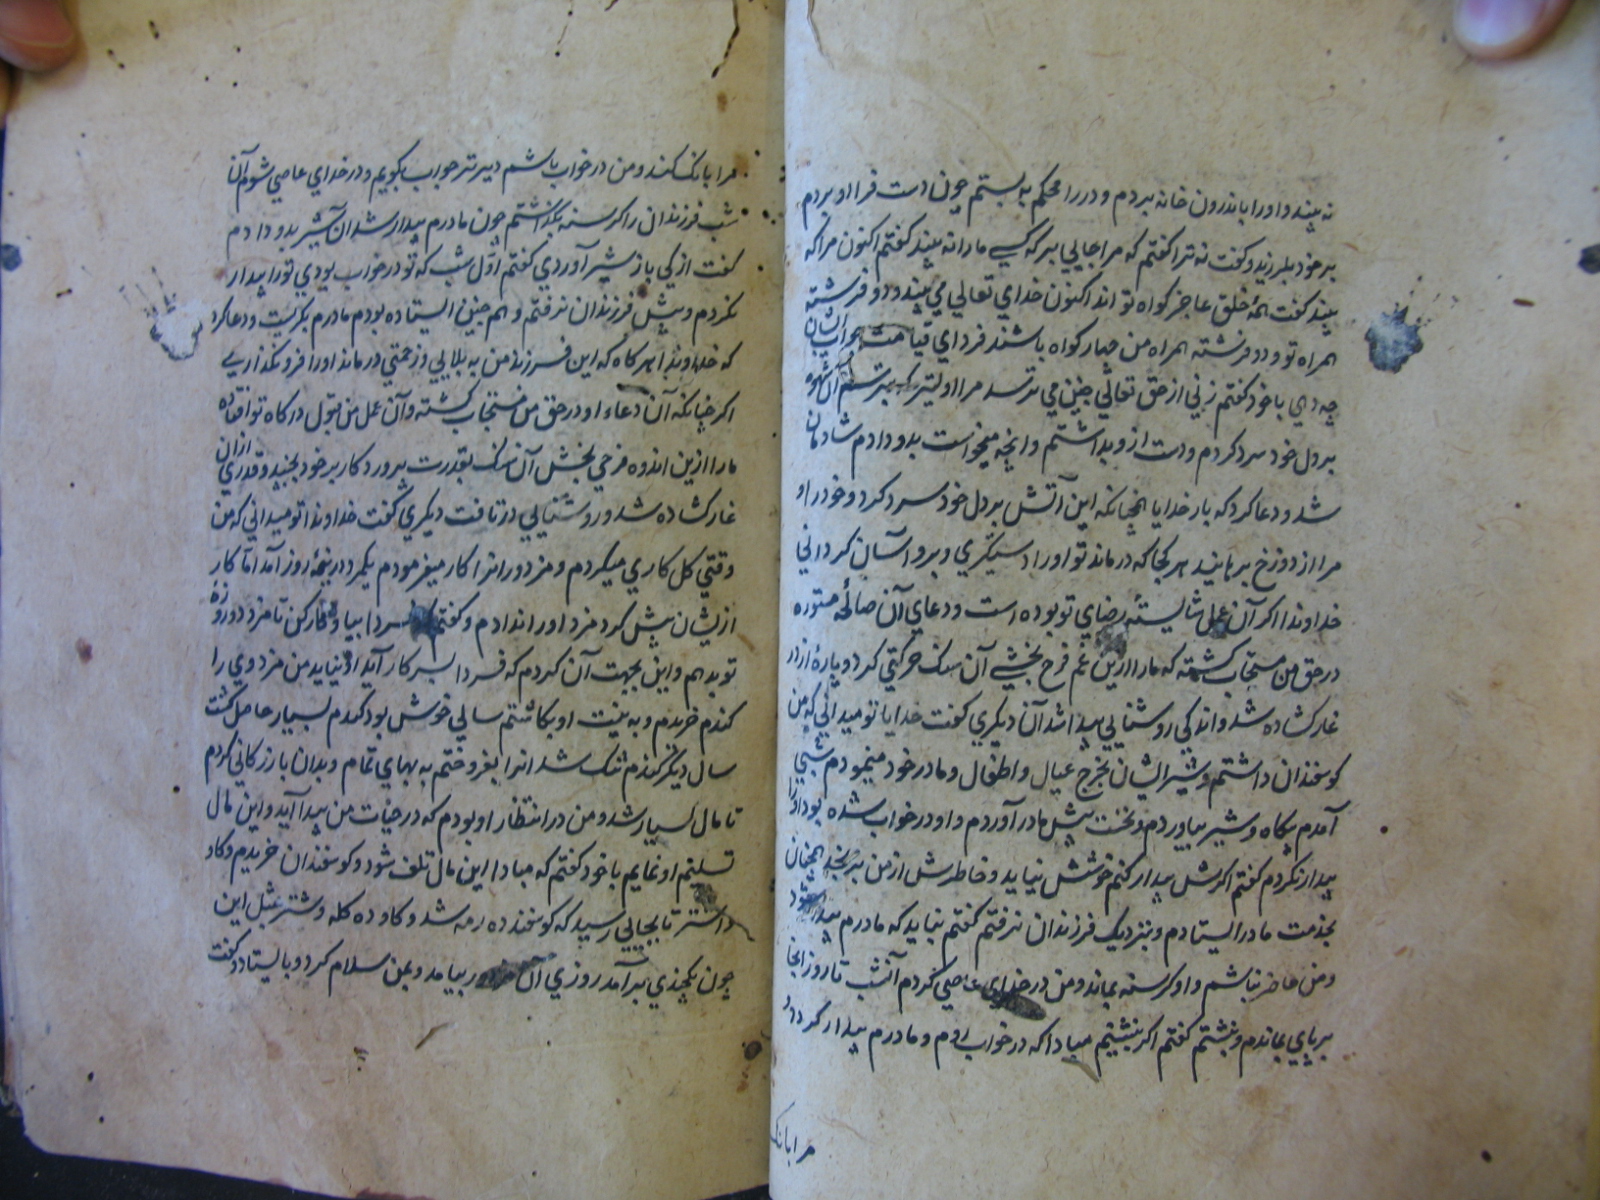 نه بیند و او را باندرون خانه بردم و در را محکم به بستم چون دست فرا او بردم
بر خود بلرزید و گفت نه ترا گفتم که مرا بجایی بر که کسی ما را نه بیند گفتم اکنون مرا که
بیند گفت همهٔ خلق عاجز گواه تو اند اکنون خدای تعالی می بیند و دو فرشته
همراه تو و دو فرشته همراه من چهار گواه باشند فردای قیامت جواب ایشان
چه دهی با خود گفتم زنی از حق تعالی چنین می ترسد مرا اولیتر که بترسم آن شهوه
بر دل خود سرد کردم و دست ازو بداشتم و آنچه میخواست بدو دادم شادمان
شد و دعا کرد که بار خدایا همچنانکه این آتش بر دل خود سرد کرد و خود را و
مرا از دوزخ برهانید هر کجا که درماند تو او را دستگیری و برو آسان گردانی
خداوندا اگر آن عمل شایستهٔ رضای تو بوده است و دعای آن صالحهٔ مستوره
در حق من مستجاب گشته که ما را ازین غم فرح بخشی آن سنک حرکتی کرد و پارهٔ از در
غار کشاده شد و اندکی روشنایی پیدا شد آن دیگری گفت خدایا تو میدانی که من
کوسفندان داشتم و شیر ایشان بخرج عیال و اطفال و مادر خود مینمودم شبی
آمدم بیکاه و شیر بیاوردم و نخست پیش مادر آوردم و او در خواب شده بود او را
بیدار نکردم گفتم اگرش بیدار کنم خوشش نیاید و خاطرش از من برنجد همچنان
بخدمت مادر ایستادم و بنزدیک فرزندان نرفتم گفتم نباید که مادرم بیدار شود
و من حاضر نباشم و او کرسنه بماند و من در خدای عاصی کردم آنشب تا روز آنجا
بر پای بماندم و ننشستم گفتم اگر بنشینم مبادا که در خواب روم و مادرم بیدار گردد و
مرا بانک
مرا بانک کند و من در خواب باشم دیرتر جواب بگویم و در خدای عاصی شوم آن
شب فرزندان را کرسنه بگذاشتم چون مادرم بیدار شد آن شیر بدو دادم
گفت از کی باز شیر آوردی گفتم اول شب که تو در خواب بودی تو را بیدار
نکردم و پیش فرزندان نرفتم و همچنین ایستاده بودم مادرم بکریست و دعا کرد
که خداوندا هر گاه که این فرزند من به بلایی و زحمتی درماند او را فرو نگذاری
اگر چنانکه آن دعاء او در حق من مستجاب گشته و آن عمل من قبول درگاه تو افتاده
ما را ازین اندوه فرحی بخش آن سنک بقدرت پروردگار بر خود بجنبید و قدری ازان
غار کشاده شد و روشنایی در تافت دیگری گفت خداوندا تو میدانی که من
وقتی کل کاری میکردم و مزدوران را کار میفرمودم یکمرد در نیمهٔ روز آمد اما کار
ازیشان بیش کرد مزد او را ندادم و گفتم فردا بیا و کار کن تا مزد دو روزه
تو بدهم و این بجهت آن کردم که فردا بسر کار آید او نیاید من مزد وی را
کندم خریدم و به نیت او بکاشتم سالی خوش بود کندم بسیار حاصل گشت
سال دیگر کندم تنک شد آنرا بفروختم به بهای تمام و بدان بازرگانی کردم
تا مال بسیار شد و من در انتظار او بودم که در حیات من پیدا آید و این مال
تسلیم او نمایم با خود گفتم که مبادا این مال تلف شود و کوسفندان خریدم و کاو
و اشتر تا بجایی رسید که کوسفند ده رمه شد و کاو ده کله و شتر مثل این
چون یکچندی برآمد روزی آن مزدور بیامد و بمن سلام کرد و بایستاد و گفت